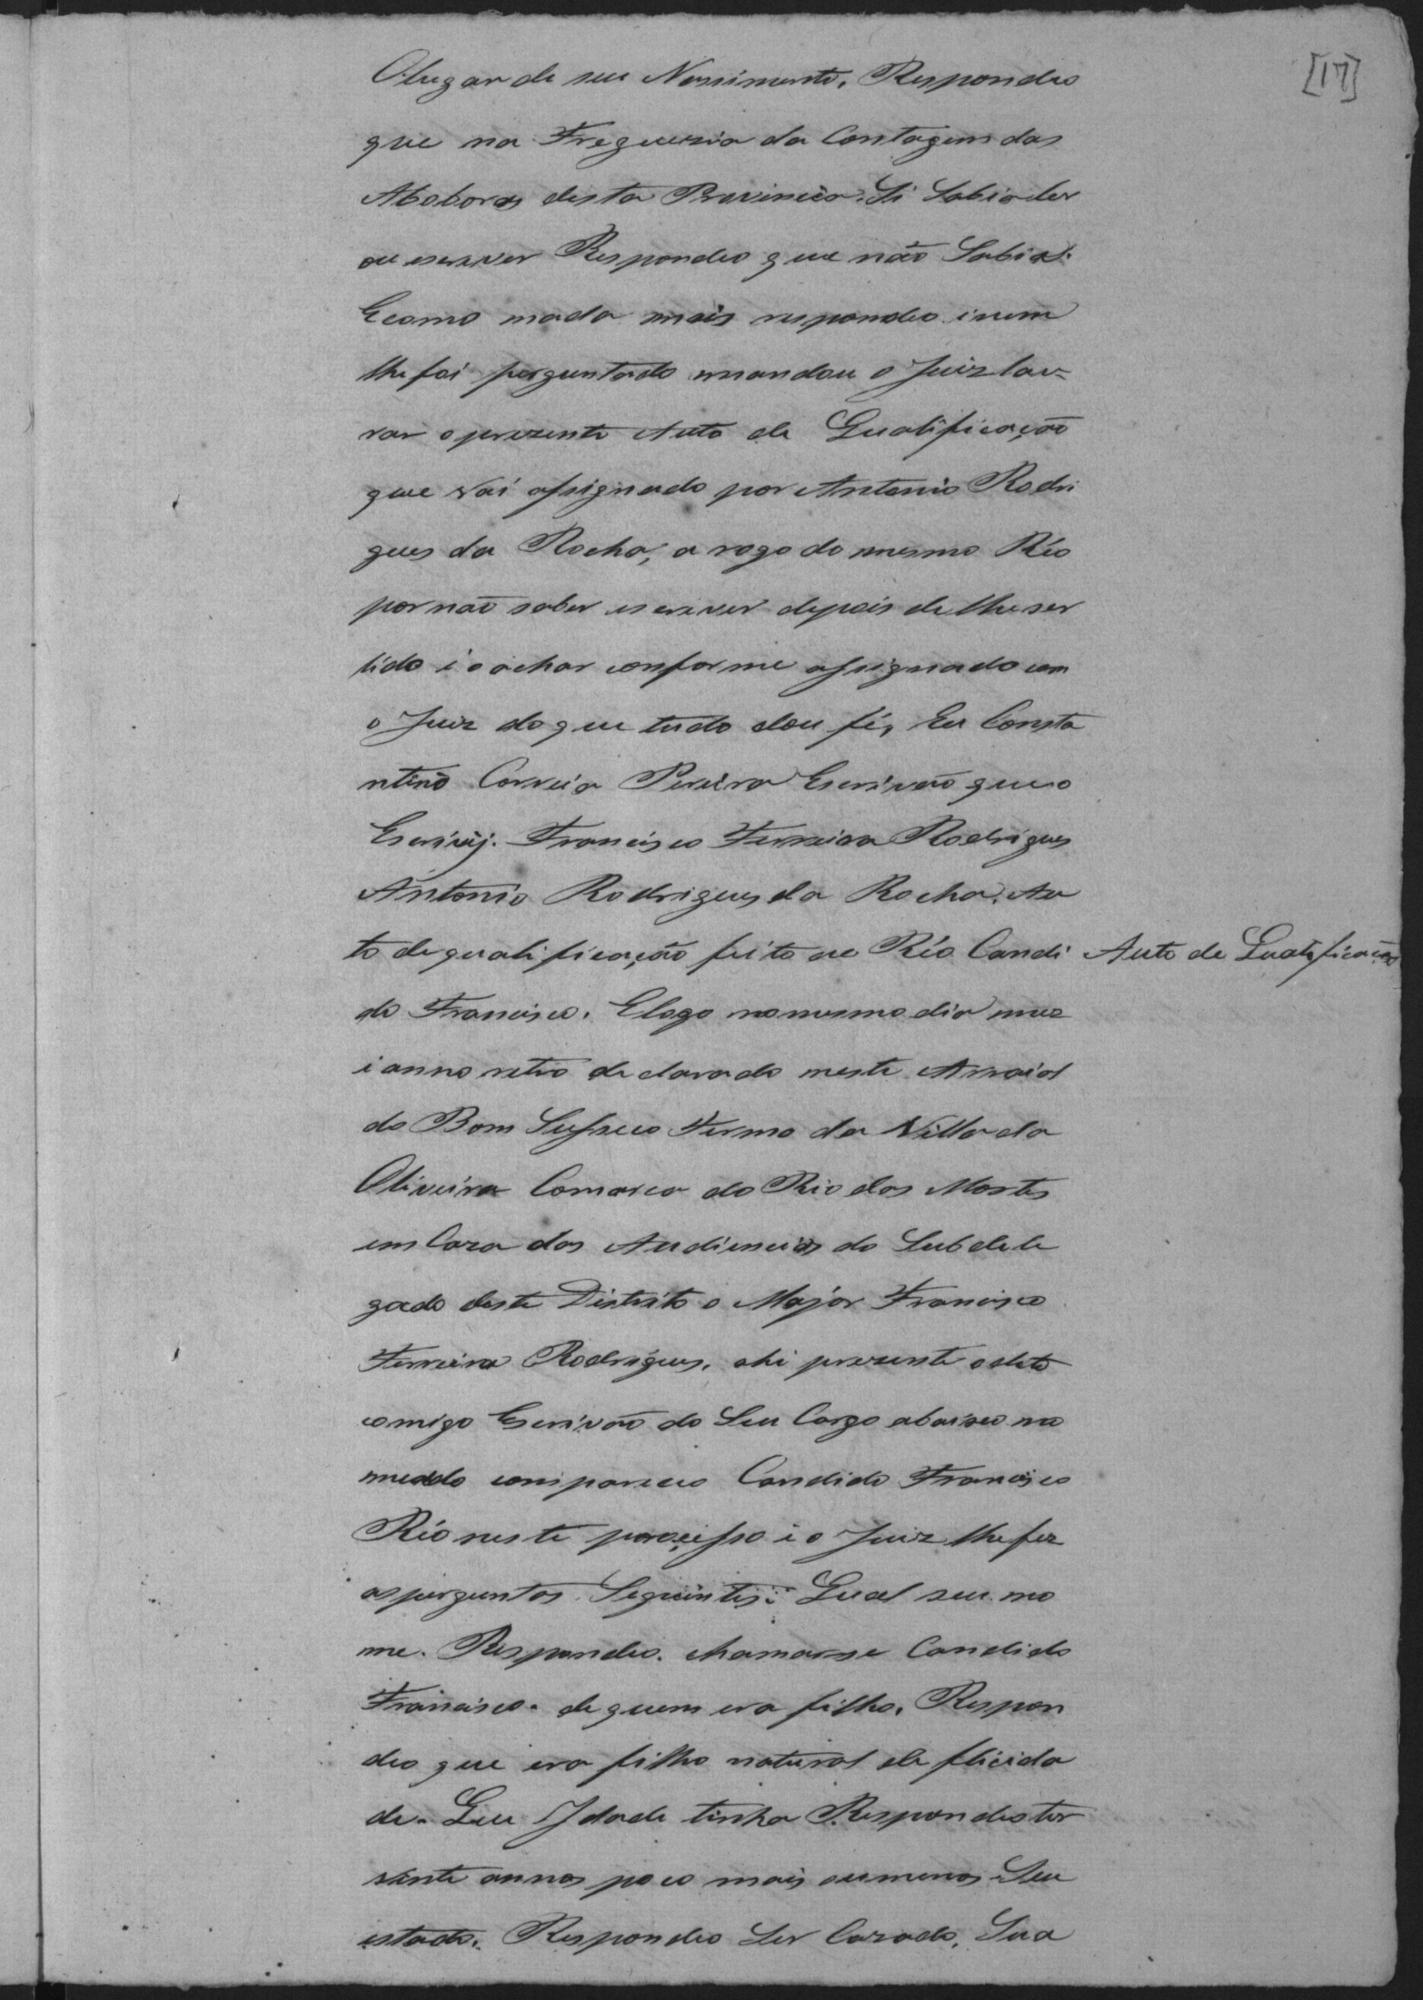 [17]
O lugar de seu Nassimento. Respondeo
que na Freguezia da Contagem das
Aboboras desta Provincia. Si Sabia ler
ou escrever Respondeo que não Sabia.
E como nada mais respondeo i nem
lhe foi perguntado mandou o Juiz lav=
rar o prezente Auto de Qualificação
que vai assignado por Antonio Rodri
gues da Rocha, a rogo do mesmo Réo
por não saber escriver depois de lhe ser
lido i o achar conforme assignado com
o Juiz do que tudo dou fé, Eu Consta
ntino Correia Pereira Escrivão que o
Escrivij. Francisco Ferreira Rodrigues
Antonio Rodrigues da Rocha. Au
to de qualificação feito ao Réo Candi
Auto de Qualificação
do Francisco. E logo no mesmo dia mez
i anno retro declarado neste Arraial
do Bom Susseco Termo da Villa da
Oliveira Comarca do Rio das Mortes
em Caza das Audiencias do Subdele
gado deste Distrito o Major Francisco
Ferreira Rodrigues, ahi prezente o dito
comigo Escrivão do Seu Cargo abaixo no
meado compareceo Candido Francisco
Réo neste processo i o Juiz lhe fez
as perguntas Seguintes: Qual seu no
me. Respondeo. chamarse Candido
Francisco. de quem era filho. Respon
deo que era filho natural de flicida
de. Que Idade tinha Respondeo ter
vinte annos poco mais ou menos Seu
estado. Respondeo Ser Cazado, Sua